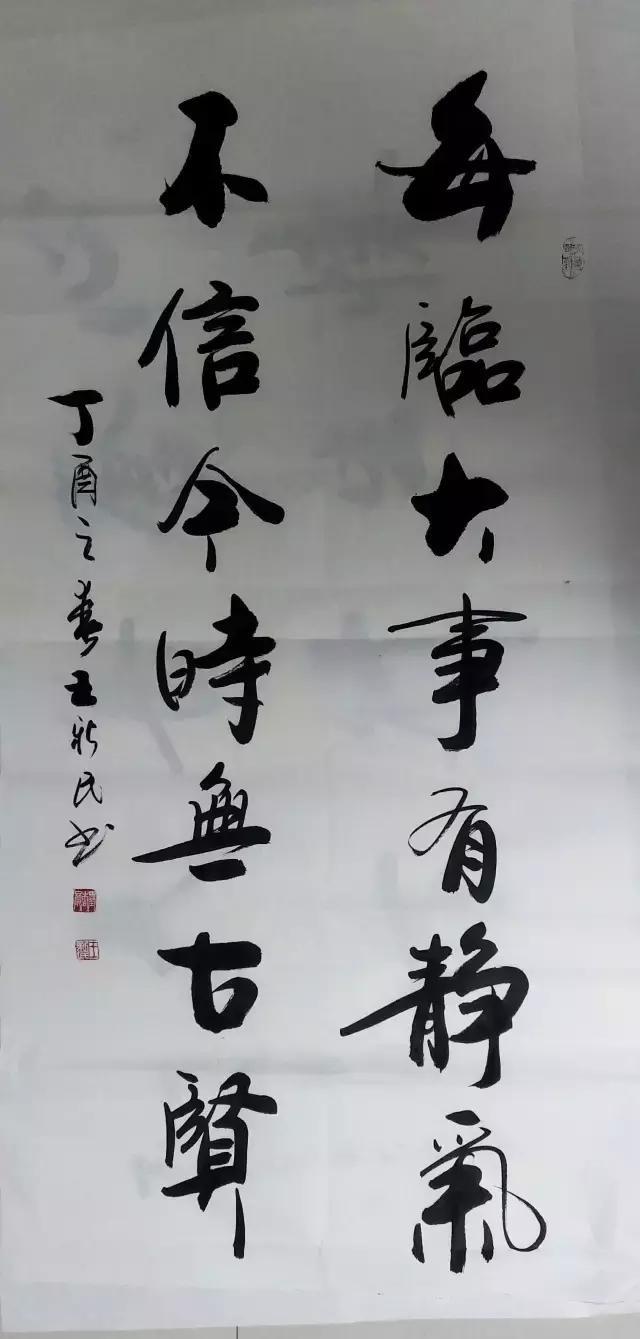 每臨大事有静氣
不信今時無古賢
丁酉之春王新民书